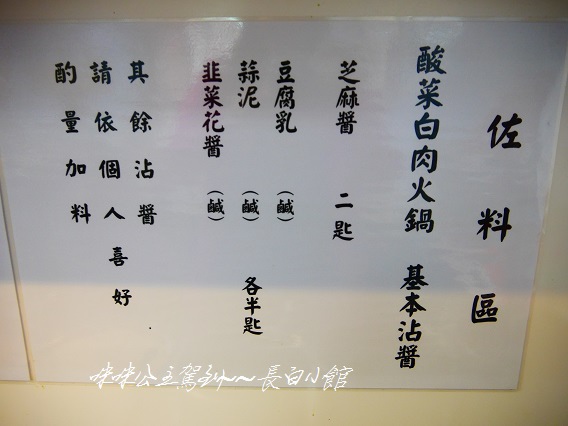 佐料區
酸菜白肉火鍋 基本沾醬
芝麻醬 二匙
豆腐乳 (鹹)
蒜泥 (鹹) 各半匙
韭菜花醬 (鹹)
其餘沾醬
請依個人喜好
酌量加料
咪咪公主駕到~長白小館